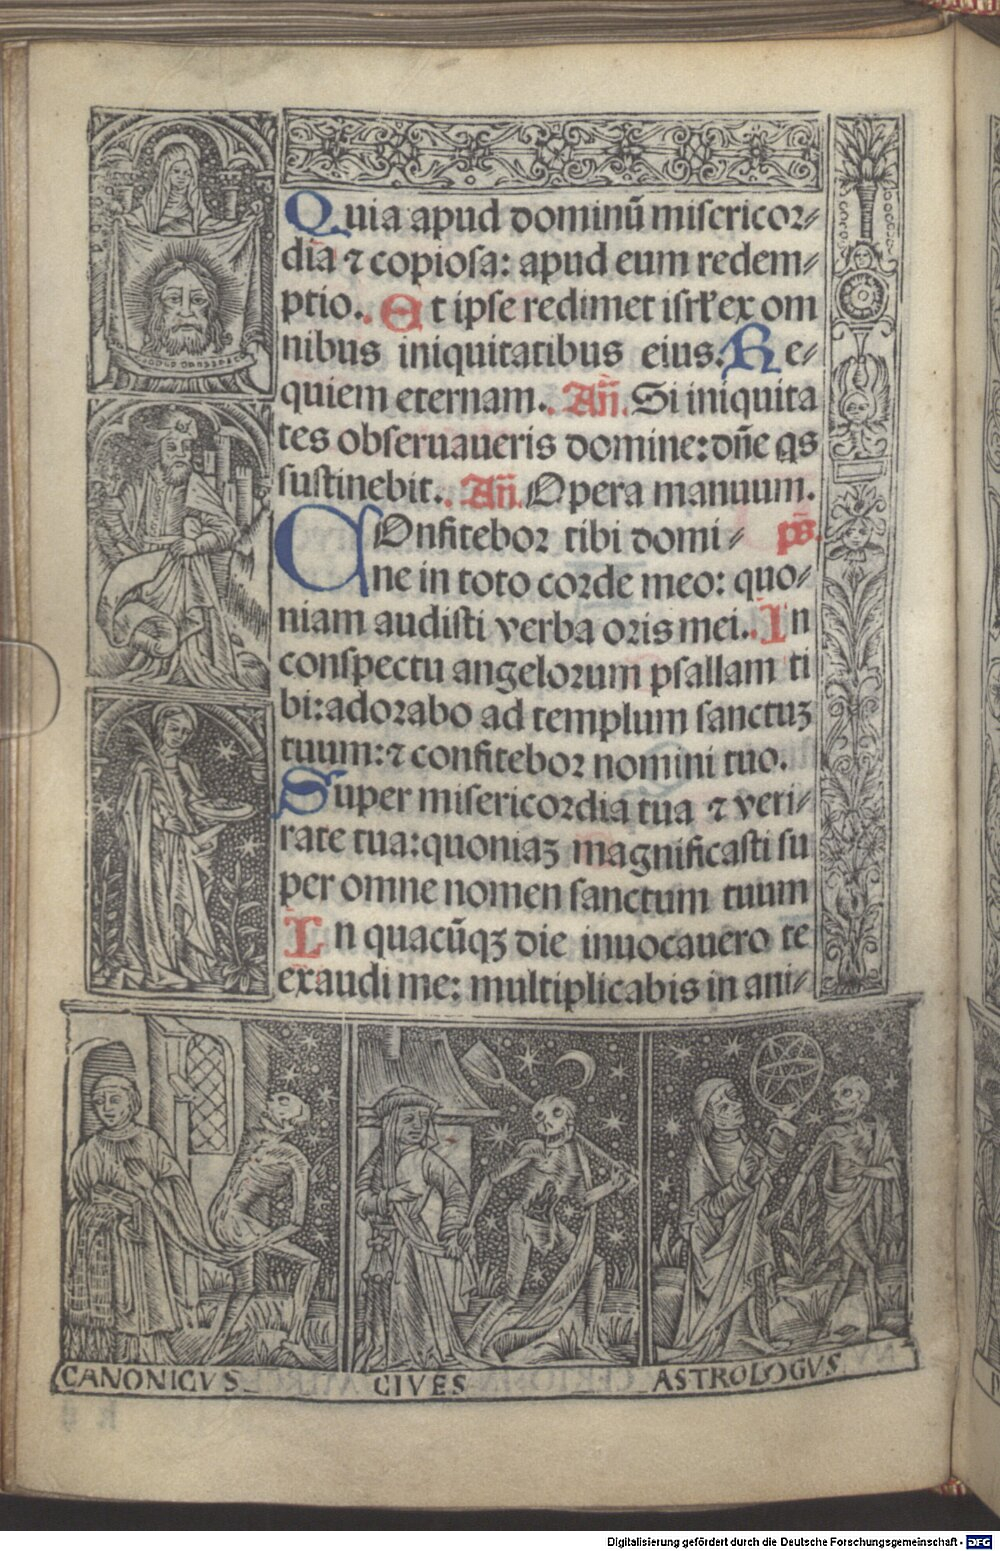 Quia apud dominū misericor⸗
dia ⁊ copiosa: apud eum redem⸗
ptio.. Et ipse redimet isrł ex om
nibus iniquitatibus eius. Re⸗
quiem eternam.. Añ. Si iniquita
tes obseruaueris domine: dñe qs
sustinebit.. Añ. Opera manuum.
COnfitebor tibi domi⸗ ps.
ne in toto corde meo: quo⸗
niam audisti verba oris mei.. In
conspectu angelorum psallam ti
bi: adorabo ad templum sanctuꝫ
tuum: ⁊ confitebor nomini tuo.
Super misericordia tua ⁊ veri⸗
tate tua: quoniaꝫ magnificasti su
per omne nomen sanctum tuum
In quacūqꝫ die inuocauero te
exaudi me: multiplicabis in ani⸗
CANONICVS CIVES ASTROLOGVS
Digitalisierung gefördert durch die Deutsche Forschungsgemeinschaft - DFG